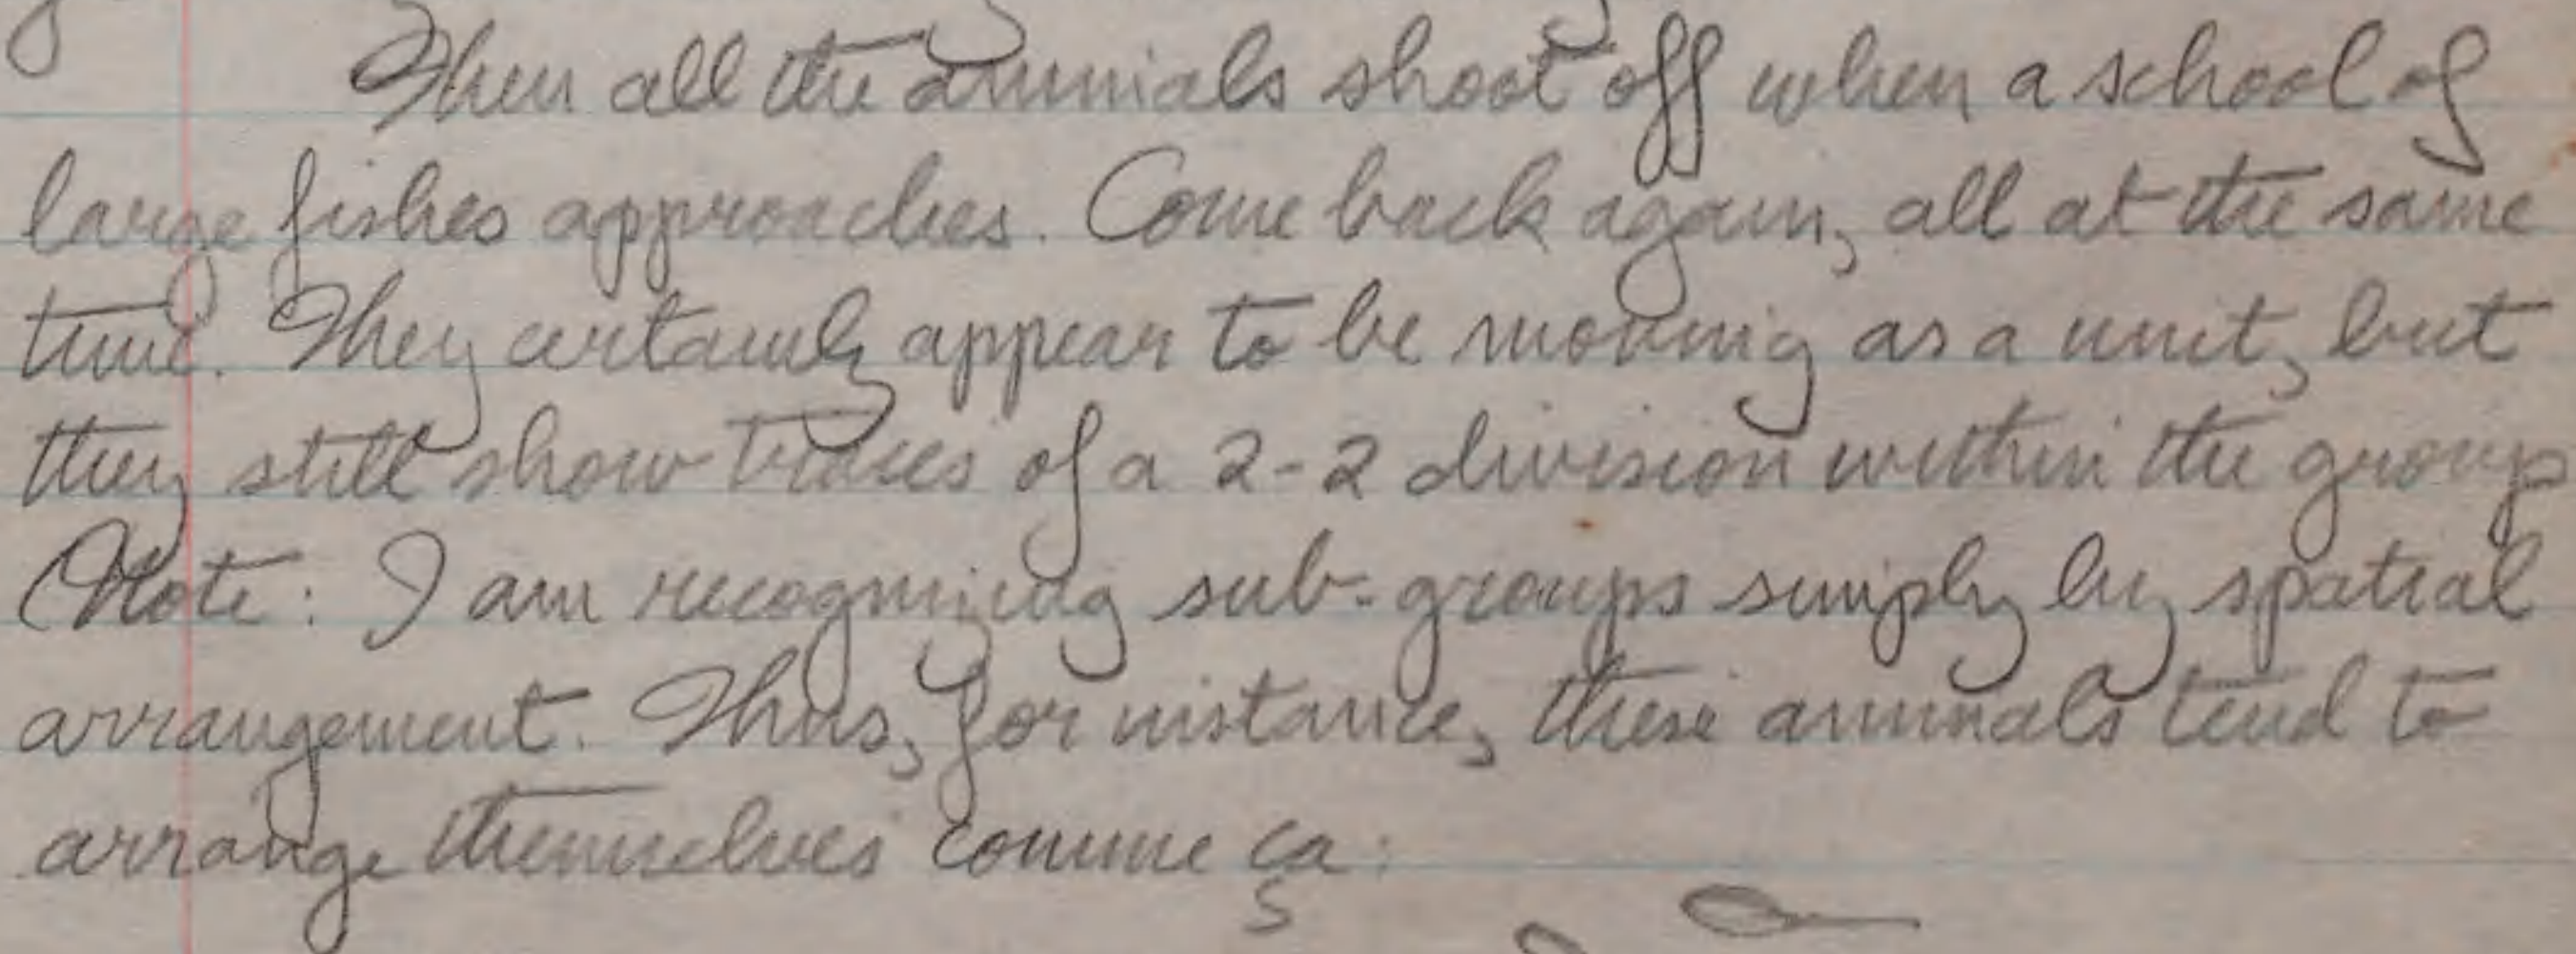 Then all the animals shoot off when a school of
large fishes approaches. Come back again, all at the same
time. They certainly appear to be moving as a unit, but
they still show traces of a 2-2 division within the group
(Note: I am recognizing sub-groups simply by spatial
arrangement. Thus, for instance, these animals tend to
arrange themselves comme ça: